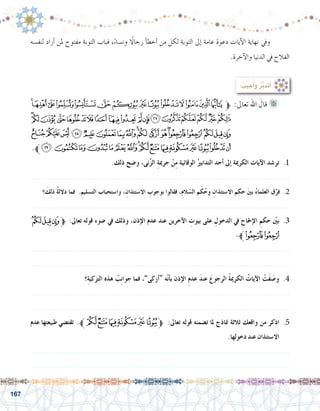 وفي نهاية الآيات دعوة عامة إلى التوبة لكل من أخطأ رجالًا ونساءً، فباب التوبة مفتوح لمن أراد لنفسه
الفلاح في الدنيا والآخرة.
أتدبر وأجيب
قال الله تعالى: ﴿ يَا أَيُّهَا الَّذِينَ آمَنُوا لَا تَدْخُلُوا بُيُوتًا غَيْرَ بُيُوتِكُمْ حَتَّى تَسْتَأْنِسُوا وَتُسَلِّمُوا عَلَى أَهْلِهَا
ذَلِكُمْ خَيْرٌ لَكُمْ لَعَلَّكُمْ تَذَكَّرُونَ ﴿٢٧﴾ فَإِنْ لَمْ تَجِدُوا فِيهَا أَحَدًا فَلَا تَدْخُلُوهَا حَتَّى يُؤْذَنَ لَكُمْ
وَإِنْ قِيلَ لَكُمُ ارْجِعُوا فَارْجِعُوا هُوَ أَزْكَى لَكُمْ وَاللَّهُ بِمَا تَعْمَلُونَ عَلِيمٌ ﴿٢٨﴾ لَيْسَ عَلَيْكُمْ جُنَاحٌ
أَنْ تَدْخُلُوا بُيُوتًا غَيْرَ مَسْكُونَةٍ فِيهَا مَتَاعٌ لَكُمْ وَاللَّهُ يَعْلَمُ مَا تُبْدُونَ وَمَا تَكْتُمُونَ ﴿٢٩﴾ ﴾.
1. ترشد الآيات الكريمة إلى أحد التدابير الوقائية مِنْ جريمةِ الزِّنى، وضح ذلك.
2. فرَّق العلماءُ بينَ حكم الاستئذان وحُكم السّلام، فقالوا بوجوب الاستئذان، واستحباب التسليم. فما دلالةُ ذلك؟
3. بيِّن حكم الإلحاح في الدخولِ على بيوتِ الآخرين عند عدم الإذن، وذلك في ضوء قوله تعالى: ﴿ وَإِنْ قِيلَ لَكُمُ
ارْجِعُوا فَارْجِعُوا ﴾.
4. وَصَفتِ الآياتُ الكريمةُ الرجوعَ عندَ عدَمِ الإذن بأنّه "أزكى"، فما جوانبُ هذه التزكية؟
5. اذكر من واقعك ثلاثة نماذج لما تضمنه قوله تعالى: ﴿ بُيُوتًا غَيْرَ مَسْكُونَةٍ فِيهَا مَتَاعٌ لَكُمْ ﴾. تقتضي طبيعتها عدم
الاستئذان عند دخولها.
167